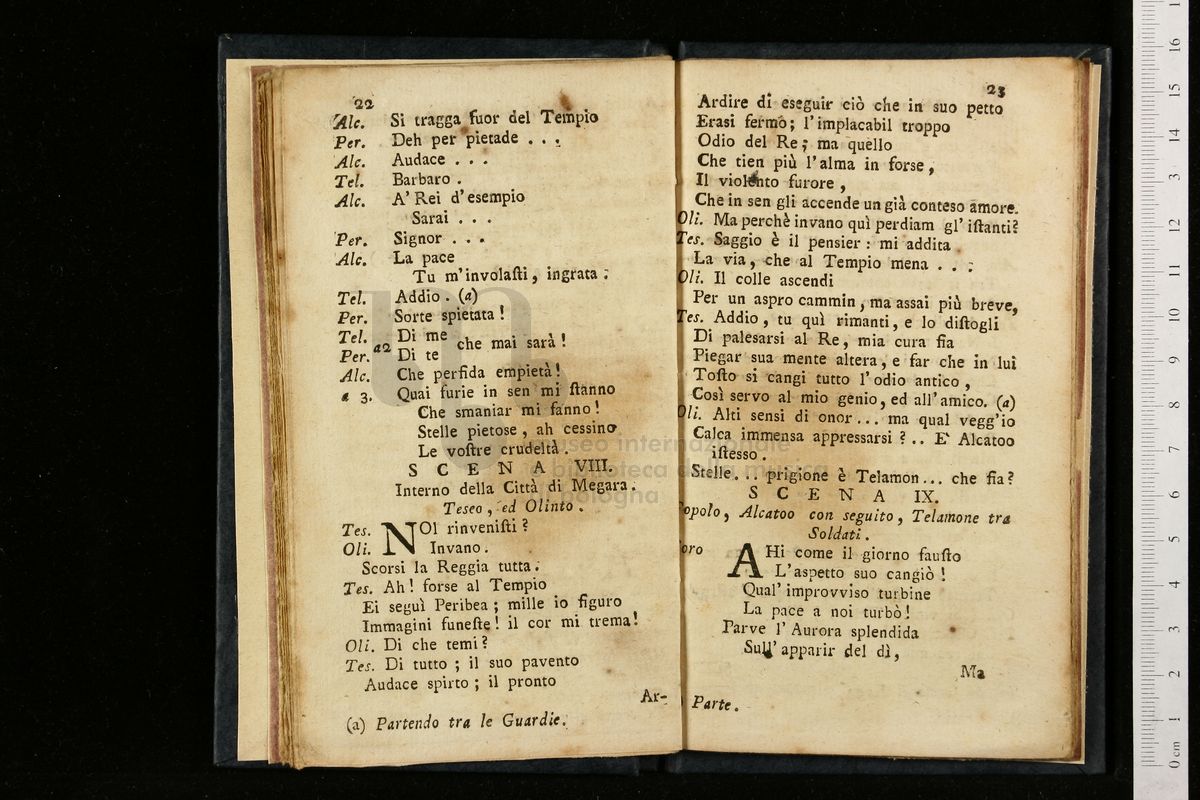 22
Alc. Si tragga fuor del Tempio
Per. Deh per pietade . . .
Alc. Audace . . .
Tel. Barbaro .
Alc. A' Rei d' esempio
Sarai . . .
Per. Signor . . .
Alc. La pace
Tu m' involaſti, ingrata .
Tel. Addio . (a)
Per. Sorte spietata !
Tel. Di me
a2 che mai sarà !
Per. Di te
Alc. Che perfida empietà !
a 3. Quai furie in sen mi ſtanno
Che smaniar mi fanno !
Stelle pietose, ah cessino
Le voſtre crudeltà .
SCENA VIII.
Interno della Città di Megara .
Teseo, ed Olinto .
Tes. NOl rinveniſti ?
Oli. Invano .
Scorsi la Reggia tutta .
Tes. Ah! forse al Tempio
Ei seguì Peribea ; mille io figuro
Immagini funeſte ! il cor mi trema !
Oli. Di che temi ?
Tes. Di tutto ; il suo pavento
Audace spirto ; il pronto
Ar-
(a) Partendo tra le Guardie.
23
Ardire di eseguir ciò che in suo petto
Erasi fermo ; l' implacabil troppo
Odio del Re ; ma quello
Che tien più l' alma in forse ,
Il violento furore ,
Che in sen gli accende un già conteso amore.
Oli. Ma perchè invano quì perdiam gl' iſtanti ?
Tes. Saggio è il pensier : mi addita
La via, che al Tempio mena . . .
Oli. Il colle ascendi
Per un aspro cammin, ma assai più breve,
Tes. Addio, tu quì rimanti, e lo diſtogli
Di palesarsi al Re, mia cura fia
Piegar sua mente altera, e far che in lui
Toſto si cangi tutto l' odio antico ,
Così servo al mio genio, ed all' amico. (a)
Oli. Alti sensi di onor... ma qual vegg'io
Calca immensa appressarsi ? .. E' Alcatoo
iſtesso .
Stelle... prigione è Telamon... che fia ?
SCENA IX.
opolo, Alcatoo con seguito, Telamone tra
Soldati .
oro AHi come il giorno fauſto
L'aspetto suo cangiò !
Qual' improvviso turbine
La pace a noi turbò !
Parve l' Aurora splendida
Sull' apparir del dì,
Ma
Parte .
museo internazionale
e biblioteca della musica
di bologna
0 cm 1 2 3 4 5 6 7 8 9 10 11 12 13 14 15 16